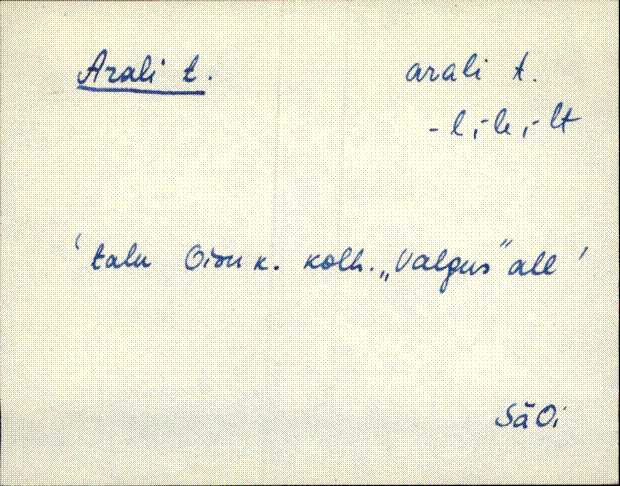 Arali t. arali t.
-l, -le, -lt
‘talu Oiu k. kolh. „Valgus” all’
SäOi